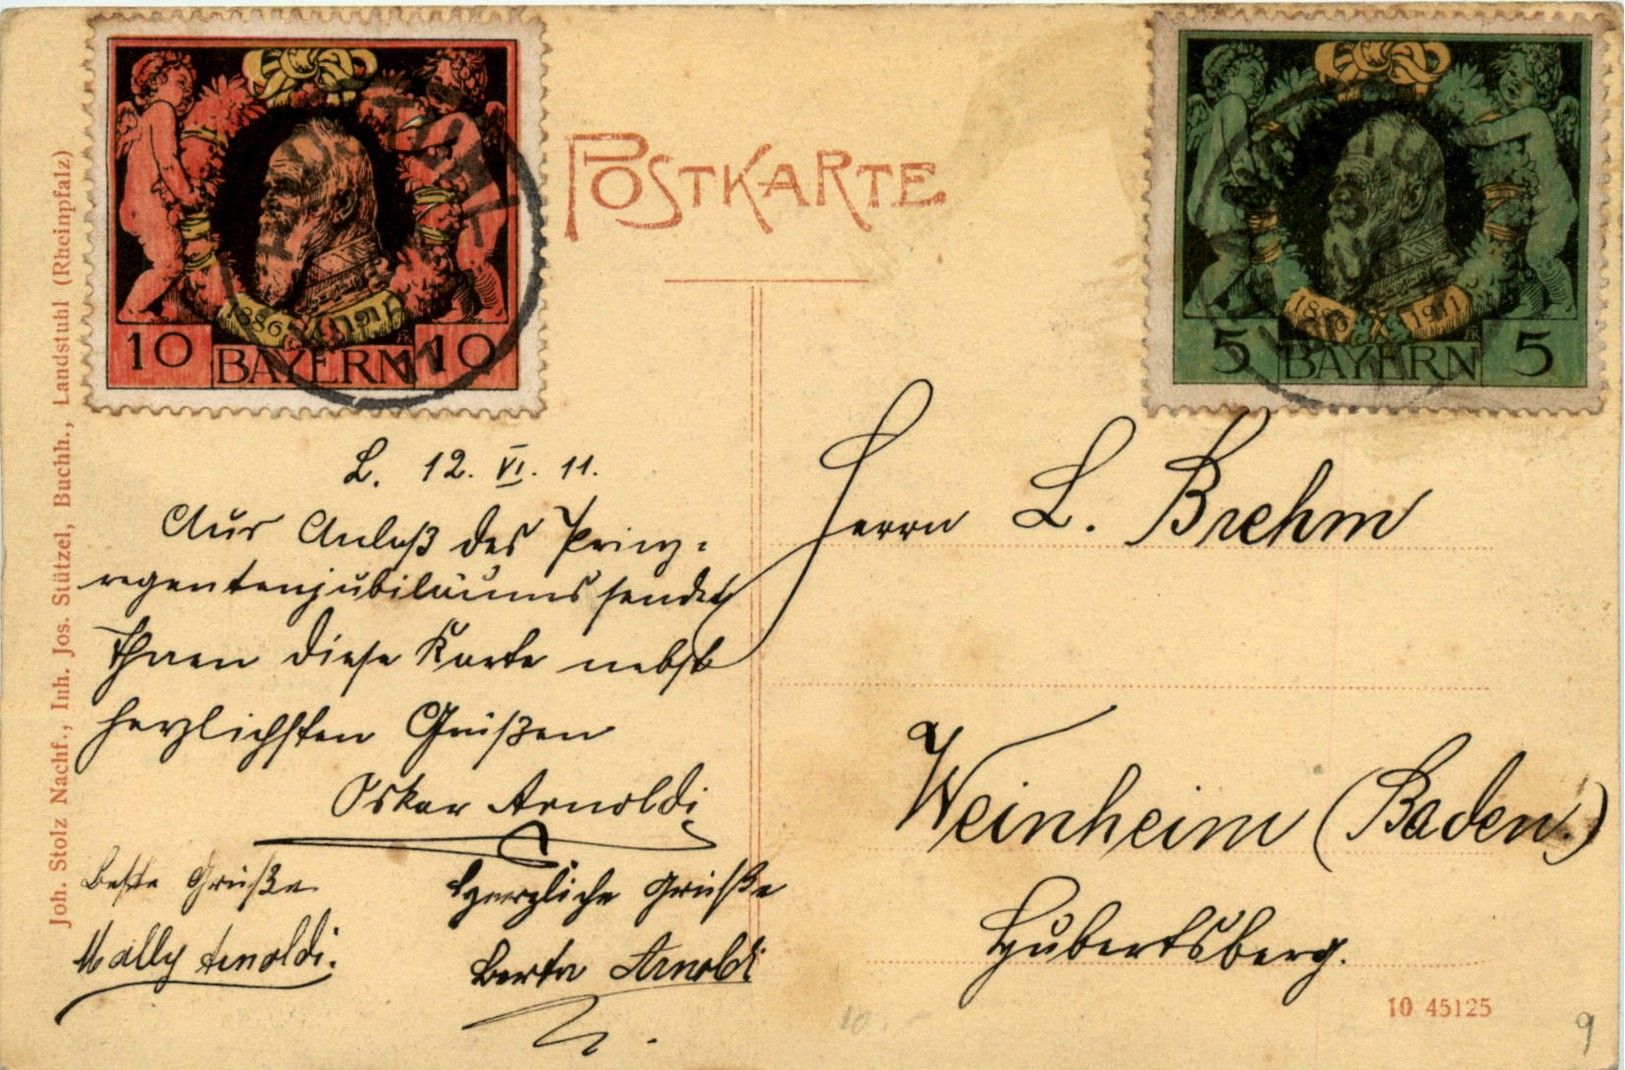 POSTKARTE.
1886 1911
10 BAYERN 10
1886 1911
5 BAYERN 5
Joh. Stolz Nachf., Inh. Jos. Stützel, Buchh., Landstuhl (Rheinpfalz)
L. 12. VI. 11.
Aus Anlaß des Prinz-
regentenjubiläums sendet
Ihnen diese Karte nebst
herzlichsten Grüßen
Oskar Arnoldi
Beste Grüße
Mally Arnoldi.
Herzliche Grüße
Berta Arnoldi
Herrn L. Brehm
Weinheim (Baden.)
Hubertsberg.
10 45125
10.-
9